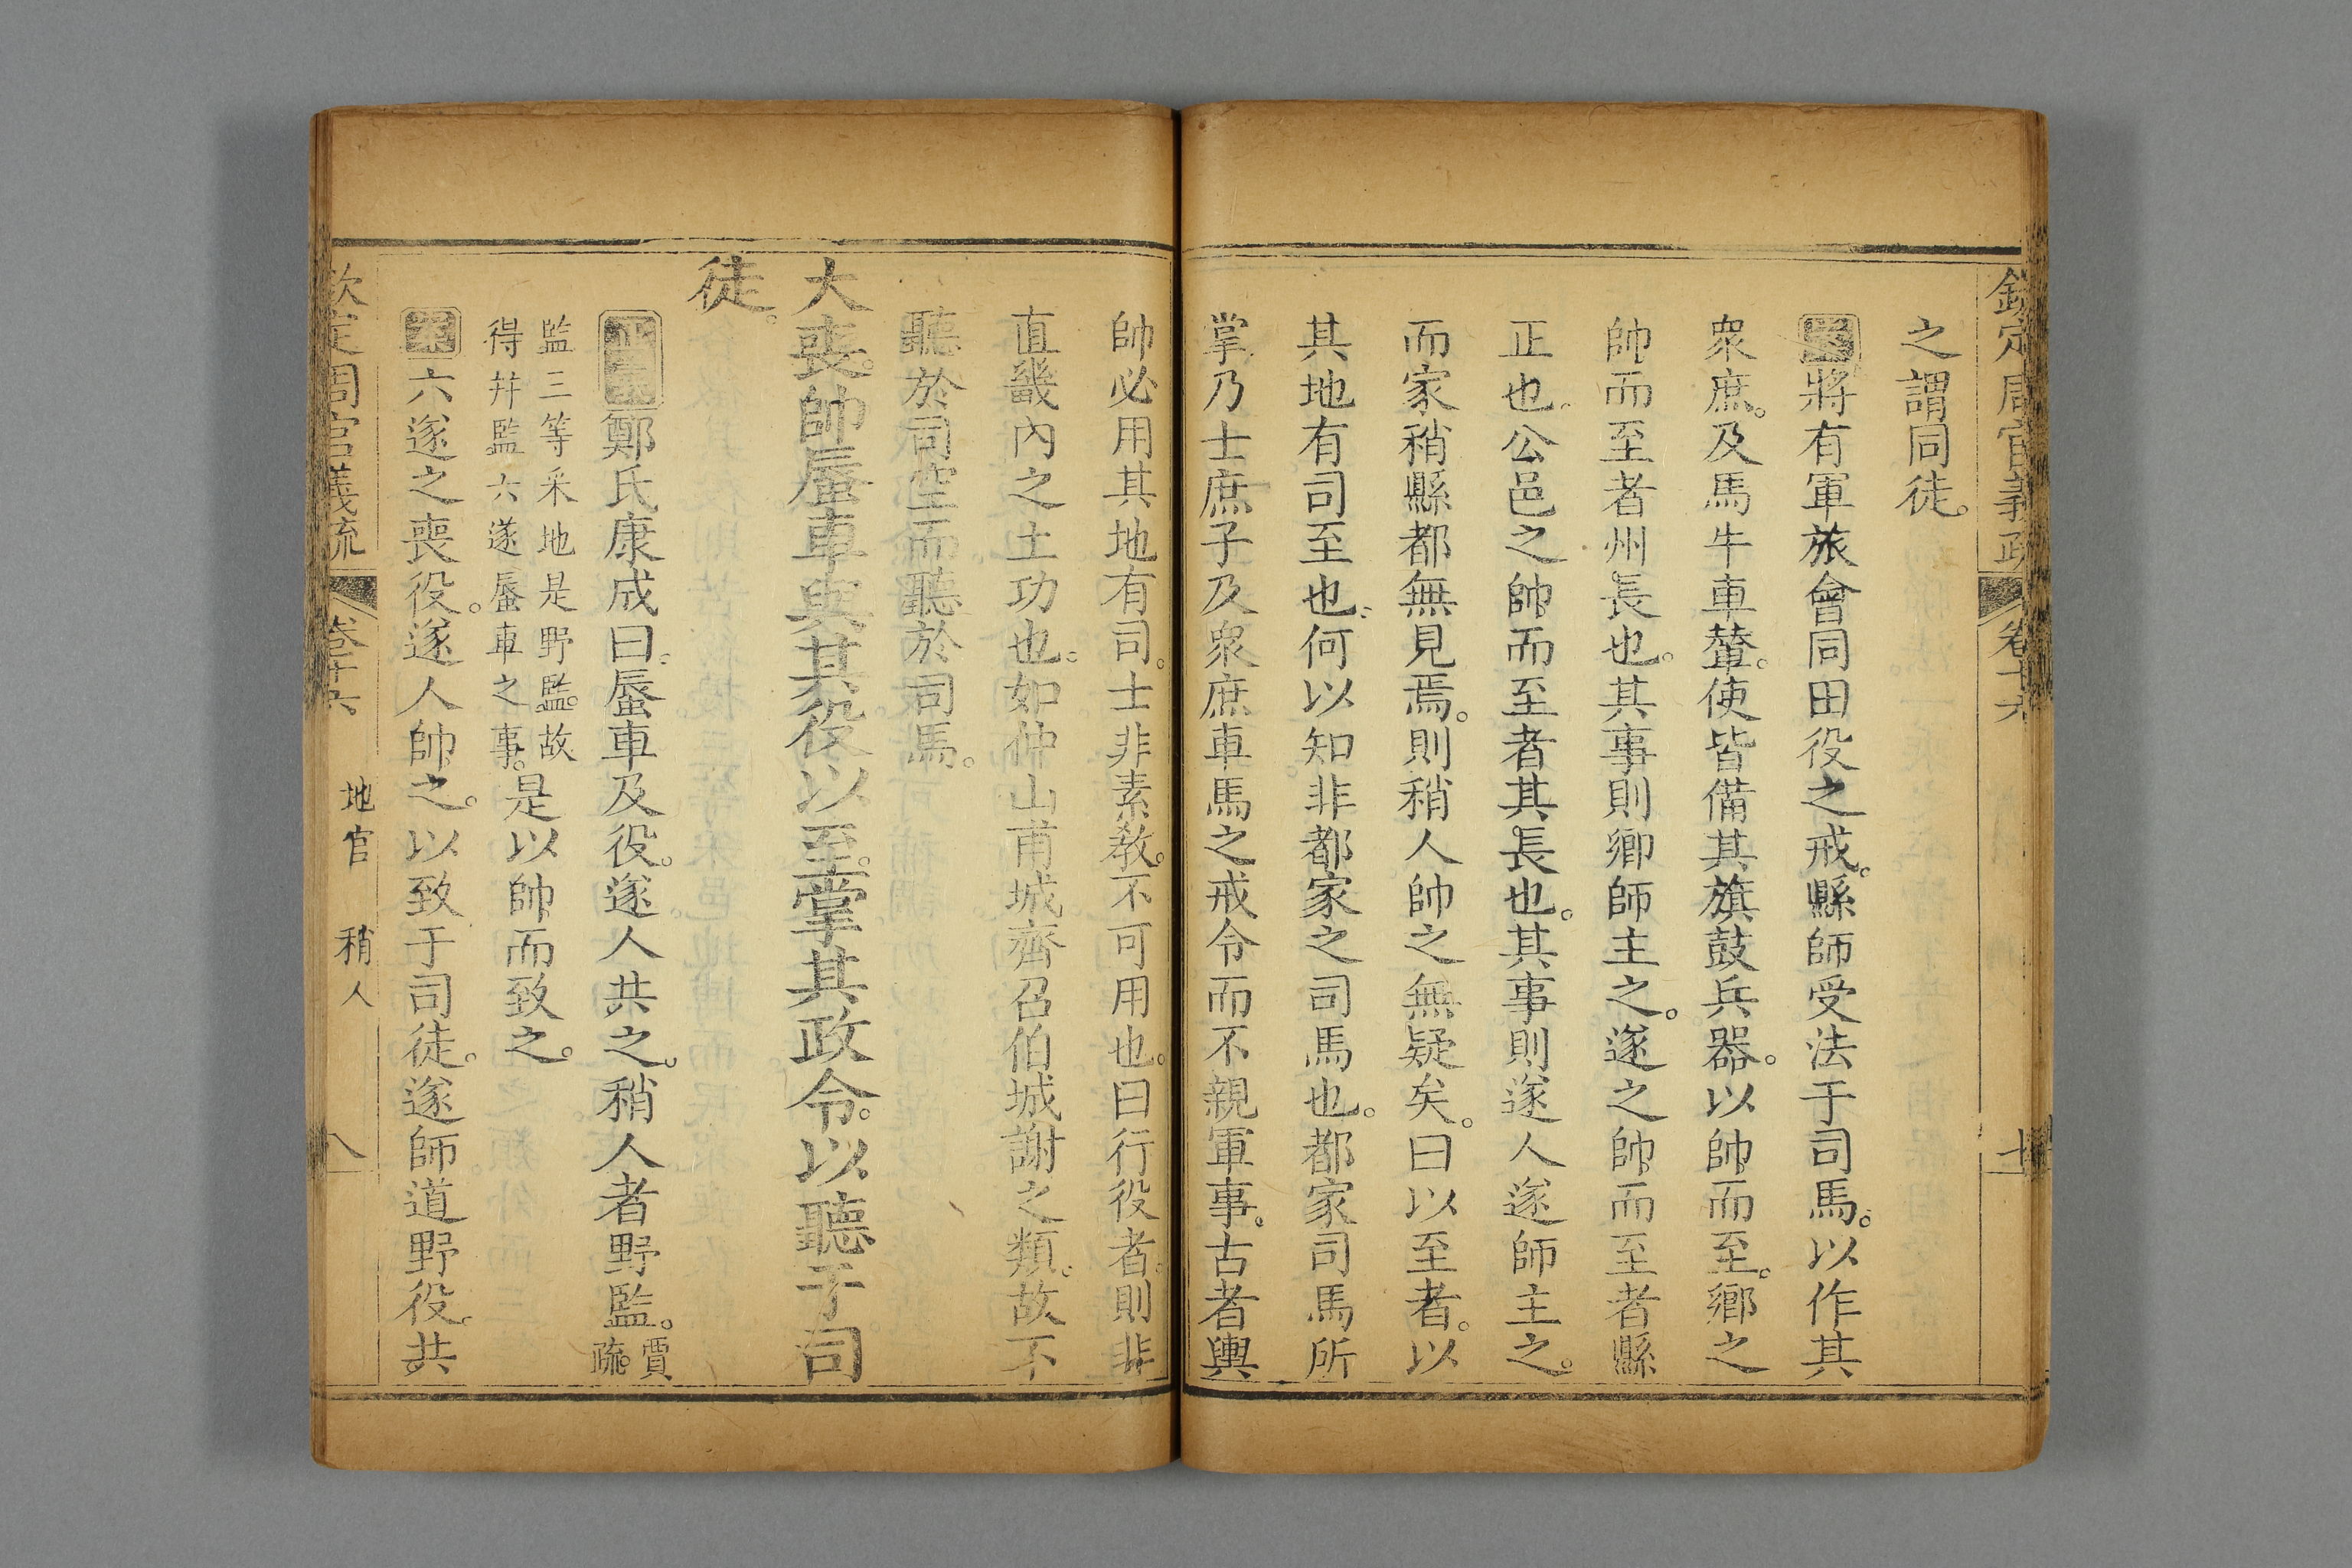 欽定周官義疏 卷十六
之謂同徒。
案將有軍旅會同田役之戒。縣師受法于司馬。以作其
衆庶。及馬牛車輦。使皆備其旗鼓兵器。以帥而至。鄉之
帥而至者州長也。其事則鄉師主之。遂之帥而至者縣
正也。公邑之帥而至者其長也。其事則遂人遂師主之。
而家稍縣都無見焉。則稍人帥之無疑矣。曰以至者。以
其地有司至也。何以知非都家之司馬也。都家司馬所
掌乃士庶子及衆庶車馬之戒令而不親軍事。古者輿
帥必用其地有司。士非素敎。不可用也。曰行役者。則非
直畿內之土功也。如仲山甫城齊召伯城謝之類。故不
聽於司空而聽於司馬。
大喪。帥蜃車與其役以至。掌其政令。以聽于司
徒。
正義鄭氏康成曰。蜃車及役。遂人共之。稍人者野監。賈疏。
監三等采地是野監。故
得幷監六遂蜃車之事。是以帥而致之。
案六遂之喪役。遂人帥之。以致于司徒。遂師道野役。共
欽定周官義疏 卷十六 地官 稍人 八